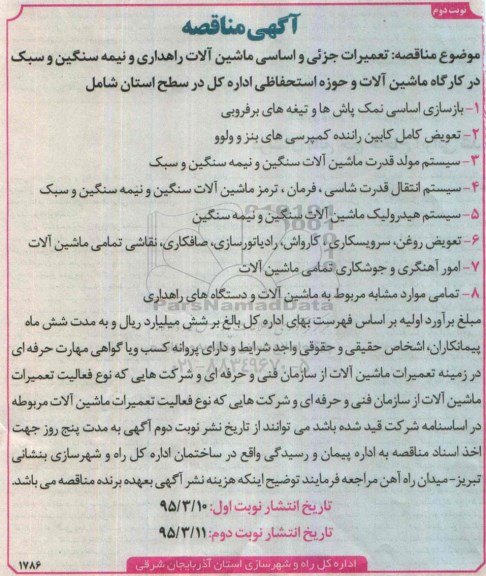 نوبت دوم
آگهی مناقصه
موضوع مناقصه: تعمیرات جزئی و اساسی ماشین آلات راهداری و نیمه سنگین و سبک
در کارگاه ماشین آلات و حوزه استحفاظی اداره کل در سطح استان شامل
۱- بازسازی اساسی نمک پاش ها و تیغه های برفروبی
۲- تعویض کامل کابین راننده کمپرسی های بنز و ولوو
۳- سیستم مولد قدرت ماشین آلات سنگین و نیمه سنگین و سبک
۴- سیستم انتقال قدرت شاسی ، فرمان ، ترمز ماشین آلات سنگین و نیمه سنگین و سبک
۵- سیستم هیدرولیک ماشین آلات سنگین و نیمه سنگین
۶- تعویض روغن، سرویسکاری ، کارواش، رادیاتورسازی، صافکاری، نقاشی تمامی ماشین آلات
۷- امور آهنگری و جوشکاری تمامی ماشین آلات
۸- تمامی موارد مشابه مربوط به ماشین آلات و دستگاه های راهداری
ParsNamadData
مبلغ برآورد اولیه بر اساس فهرست بهای اداره کل بالغ بر شش میلیارد ریال و به مدت شش ماه
پیمانکاران، اشخاص حقیقی و حقوقی واجد شرایط و دارای پروانه کسب ویا گواهی مهارت حرفه ای
در زمینه تعمیرات ماشین آلات از سازمان فنی و حرفه ای و شرکت هایی که نوع فعالیت تعمیرات
ماشین آلات از سازمان فنی و حرفه ای و شرکت هایی که نوع فعالیت تعمیرات ماشین آلات مربوطه
در اساسنامه شرکت قید شده باشد می توانند از تاریخ نشر نوبت دوم آگهی به مدت پنج روز جهت
اخذ اسناد مناقصه به اداره پیمان و رسیدگی واقع در ساختمان اداره کل راه و شهرسازی بنشانی
تبریز-میدان راه آهن مراجعه فرمایند توضیح اینکه هزینه نشر آگهی بعهده برنده مناقصه می باشد.
تاریخ انتشار نوبت اول: ۹۵/۳/۱۰
تاریخ انتشار نوبت دوم: ۹۵/۳/۱۱
اداره کل راه و شهرسازی استان آذربایجان شرقی
۱۷۸۶